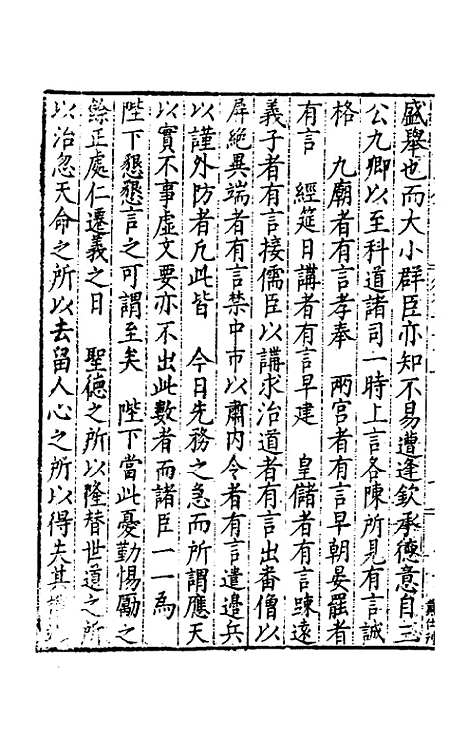 盛舉也而大小群臣亦知不易遭逢欽承德意自三
公九卿以至科道諸司一時上言各陳所見有言誠
格　九廟者有言孝奉　兩宮者有言早朝晏罷者
有言　經筵日講者有言早建　皇儲者有言踈遠
義子者有言接儒臣以講求治道者有言出番僧以
屏絶異端者有言禁中市以肅内令者有言遣邉兵
以謹外防者凡此皆　今日先務之急而所謂應天
以實不事虛文要亦不出此數者而諸臣一一爲
陛下懇懇言之可謂至矣　陛下當此憂勤惕勵之
餘正處仁遷義之日　聖德之所以隆替世道之所
以治忽天命之所以去留人心之所以得失其